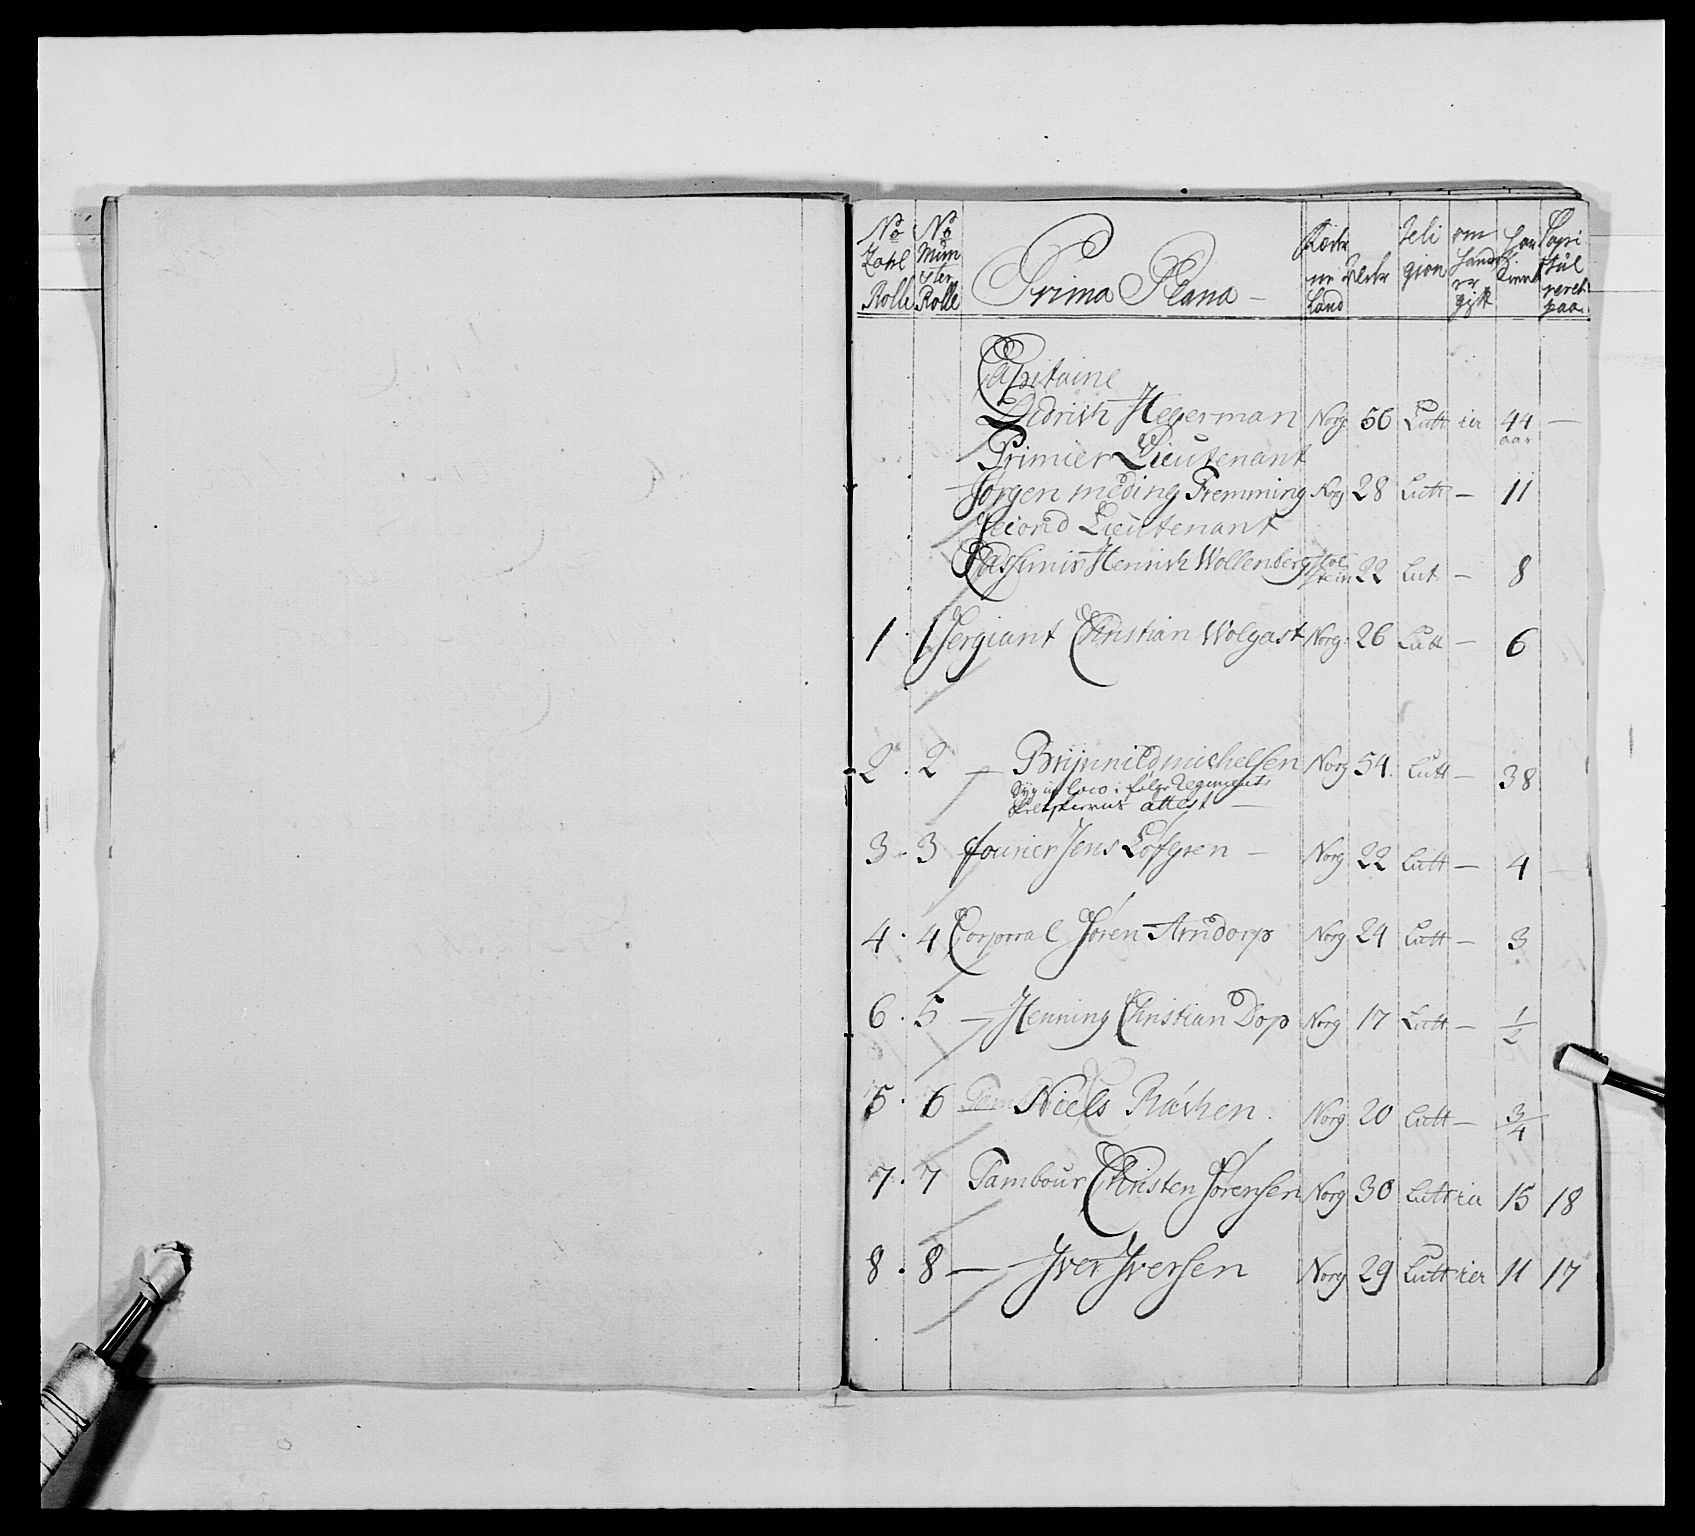 No Zahl Rolle | No Mün ster Rolle | Prima Plana — | Alder | Reli gion | om hand er gift | har tient | Capi tul veret paa
Capitaine
Didrich Hegerman | Norg | 56 | Lutt | ier | 44 aar | —
Primier Lieutenant
Jörgen meding Fremming | Norg | 28 | Lutt | — | 11
Second Lieutenant
Cassimir Henrich Wollenberg | Hol stein | 22 | Lut. | — | 8
1 · 1 Sergiant Christian Wolgast | Norg. | 26 | Lutt | — | 6
2 · 2 — Brÿnnild michelsen | Norg | 54. | Lutt | — | 38
Sÿg in loco i følge Regiments
attest —
3 · 3 fourier Jens Løfgren — | Norg | 22 | Lutt | — | 4
4 · 4 Corporal Søren Arndorp | Norg | 24 | Lutt | — | 3
6 · 5 — Henning Christian Dop | Norg | 17 | Lutt | — | 1/2
5 · 6 Niels Råchen. | Norg | 20 | Lutt | — | 3/4
7 · 7 Tambour Christen Sørensen | Norg | 30 | Lutt | ier | 15 | 18
8 · 8 — Iver Iversen | Norg | 29 | Lutt | ier | 11 | 17